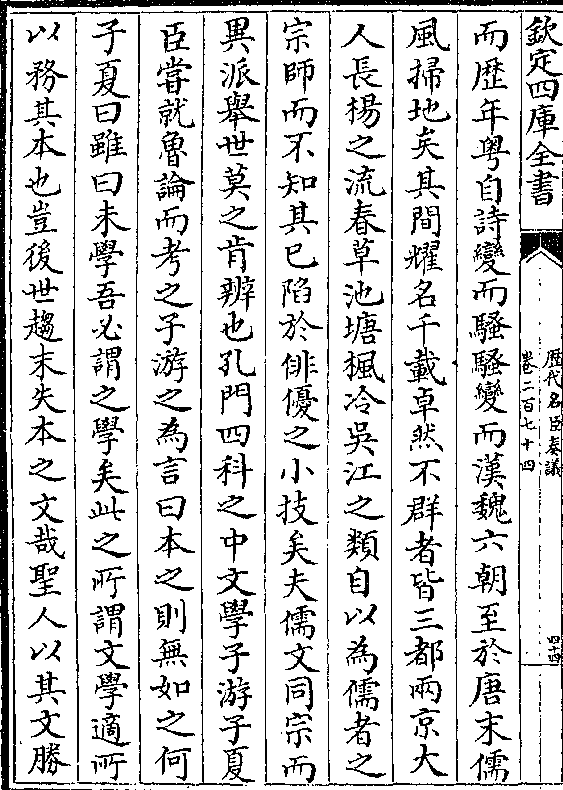 欽定四庫全書
歷代名臣奏議
卷二百七十四
四十四
而歷年粤自詩變而騷騷變而漢魏六朝至於唐末儒
風掃地矣其間耀名千載卓然不群者皆三都兩京大
人長楊之流春草池塘楓冷吳江之類自以為儒者之
宗師而不知其已陷於俳優之小技矣夫儒文同宗而
異派舉世莫之肯辨也孔門四科之中文學子游子夏
臣嘗就魯論而考之子游之為言曰本之則無如之何
子夏曰雖曰未學吾必謂之學矣此之所謂文學適所
以務其本也豈後世趨末失本之文哉聖人以其文勝